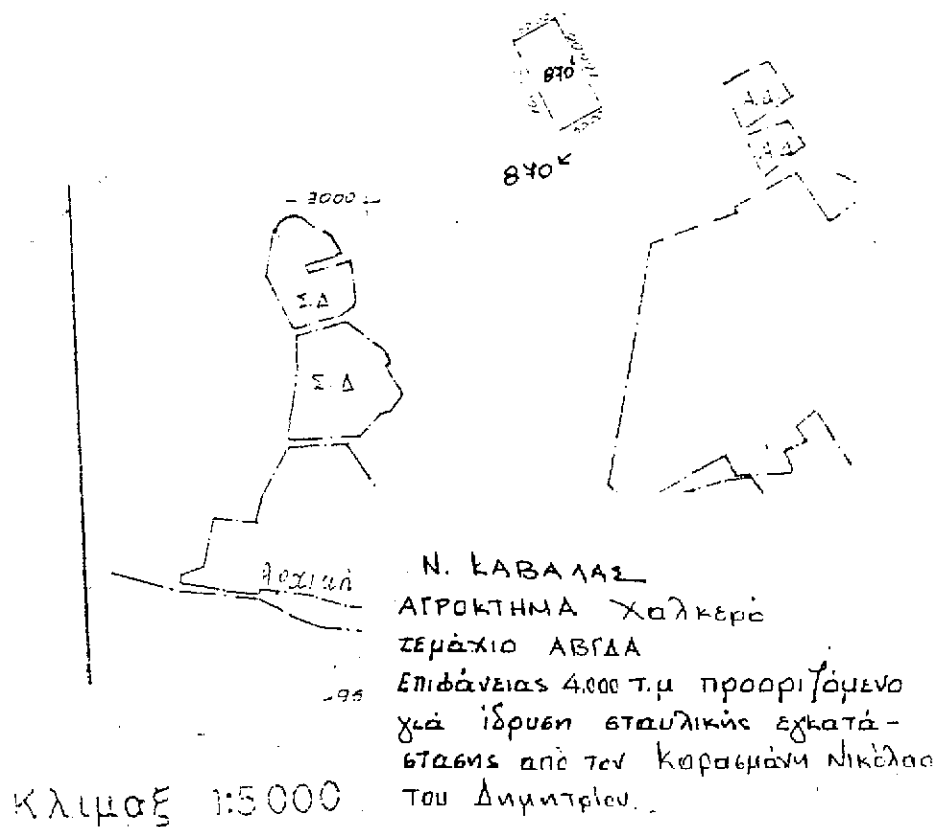 870κ
Α.Δ.
Α.Δ
870κ
- 3000 -
Σ.Δ
Σ.Δ
Αρχική
Ν. ΚΑΒΑΛΑΣ
ΑΓΡΟΚΤΗΜΑ Χαλκερό
τεμάχιο ΑΒΓΔΑ
-95
Επιφάνειας 4.000 τ.μ προοριζόμενο
γιά ίδρυση σταυλικής εγκατά-
στασης από τον Καρασμάνη Νικόλαο
του Δημητρίου.
κλιμαξ 1:5000